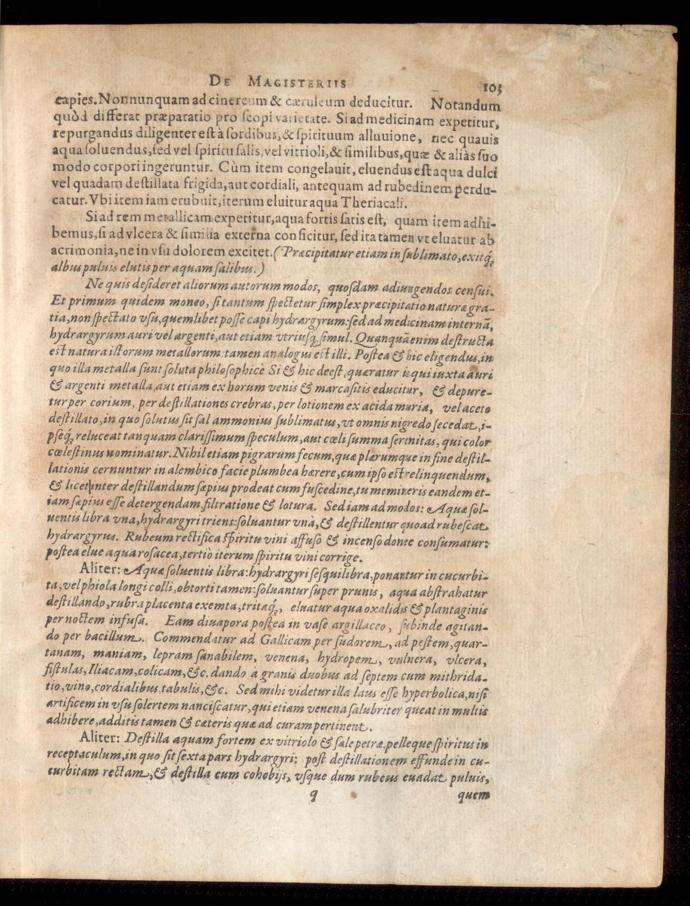 DE MAGISTERIIS 103
capies. Nonnunquam ad cinereum & cæruleum deducitur. Notandum
quòd differat præparatio pro scopi varietate. Si ad medicinam expetitur,
repurgandus diligenter est à sordibus, & spirituum alluuione, nec quauis
aqua soluendus, sed vel spiritu salis, vel vitrioli, & similibus, quæ & aliàs suo
modo corpori ingeruntur. Cùm item congelauit, eluendus est aqua dulci
vel quadam destillata frigida, aut cordiali, antequam ad rubedinem perdu-
catur. Vbi item iam erubuit, iterum eluitur aqua Theriacali.
Si ad rem metallicam expetitur, aqua fortis satis est, quam item adhi-
bemus, si ad vlcera & similia externa conficitur, sed ita tamen vt eluatur ab
acrimonia, ne in vsu dolorem excitet. (Præcipitatur etiam in sublimato, exitq́;
albus puluis elutis per aquam salibus.)
Ne quis desideret aliorum autorum modos, quosdam adiungendos censui.
Et primum quidem moneo, si tantum spectetur simplex præcipitatio naturæ gra-
tia, non spectato vsu, quemlibet posse capi hydrargyrum: sed ad medicinam internã,
hydrargyrum auri vel argenti, aut etiam vtriusq; simul. Quanquã enim destructa
est natura istorum metallorum: tamen analogus est illi. Postea & hic eligendus, in
quo illa metalla sunt soluta philosophicè Si & hic deest, quæratur is qui iuxta auri
& argenti metalla, aut etiam ex horum venis & marcasitis educitur, & depure-
tur per corium, per destillationes crebras, per lotionem ex acida muria, vel aceto
destillato, in quo solutus sit sal ammonius sublimatus, vt omnis nigredo secedat, i-
pseq́; reluceat tanquam clarissimum speculum, aut cœli summa serenitas, qui color
cœlestinus nominatur. Nihil etiam pigrarum fecum, quæ plærumque in fine destil-
lationis cernuntur in alembico facie plumbea hærere, cum ipso est relinquendum,
& licet inter destillandum sæpius prodeat cum fuscedine, tu memineris eandem et-
iam sæpius esse detergendam, filtratione & lotura. Sed iam ad modos: Aquæ sol-
uentis libra vna, hydrargyri triens: soluantur vnà, & destillentur quoad rubescat
hydrargyrus. Rubeum rectifica spiritu vini affuso & incenso donec consumatur:
postea elue aqua rosacea, tertiò iterum spiritu vini corrige.
Aliter: Aquæ soluentis libra: hydrargyri sesquilibra, ponantur in cucurbi-
ta, vel phiola longi colli, obtorti tamen: soluantur super prunis, aqua abstrahatur
destillando, rubra placenta exemta, tritaq́;, eluatur aqua oxalidis & plantaginis
per noctem infusa. Eam diuapora postea in vase argillaceo, subinde agitan-
do per bacillum. Commendatur ad Gallicam per sudorem, ad pestem, quar-
tanam, maniam, lepram sanabilem, venena, hydropem, vulnera, vlcera,
fistulas, Iliacam, colicam, &c. dando a granis duobus ad septem cum mithrida-
tio, vino, cordialibus tabulis, &c. Sed mihi videtur illa laus esse hyperbolica, nisi
artificem in vsu solertem nanciscatur, qui etiam venena salubriter queat in multis
adhibere, additis tamen & cæteris quæ ad curam pertinent.
Aliter: Destilla aquam fortem ex vitriolo & sale petræ, pelleque spiritus in
receptaculum, in quo sit sexta pars hydrargyri: post destillationem effunde in cu-
curbitam rectam, & destilla cum cohobijs, vsque dum rubeus euadat puluis,
q quem